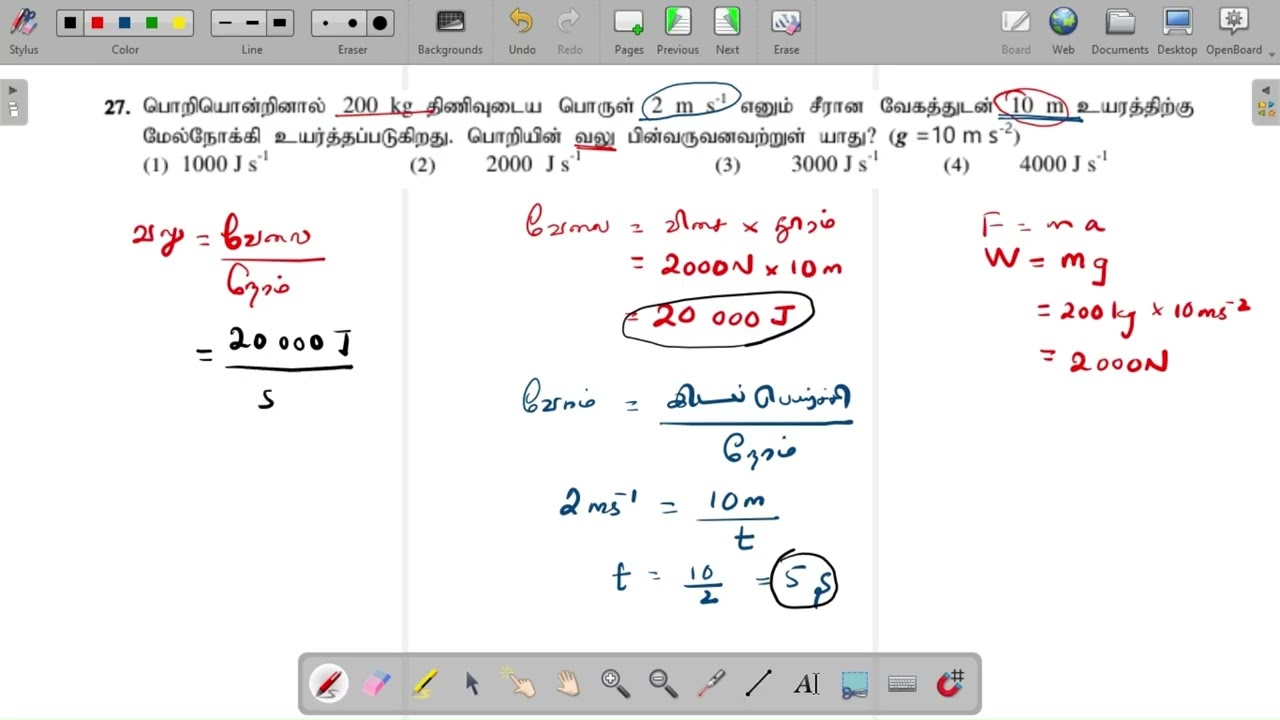 Stylus Color Line Eraser Backgrounds Undo Redo Pages Previous Next Erase Board Web Documents Desktop OpenBoard
27. பொறியொன்றினால் 200 kg திணிவுடைய பொருள் 2 m s⁻¹ எனும் சீரான வேகத்துடன் 10 m உயரத்திற்கு
மேல்நோக்கி உயர்த்தப்படுகிறது. பொறியின் வலு பின்வருவனவற்றுள் யாது? (g =10 m s⁻²)
(1) 1000 J s⁻¹ (2) 2000 J s⁻¹ (3) 3000 J s⁻¹ (4) 4000 J s⁻¹
வலு = வேலை
நேரம்
= 20 000 J
5
வேலை = விசை × தூரம்
= 2000N × 10m
= 20 000 J
வேகம் = இடப்பெயர்ச்சி
நேரம்
2ms⁻¹ = 10m
t
t = 10
2
= 5 s
F = ma
W = mg
= 200kg × 10ms⁻²
= 2000N